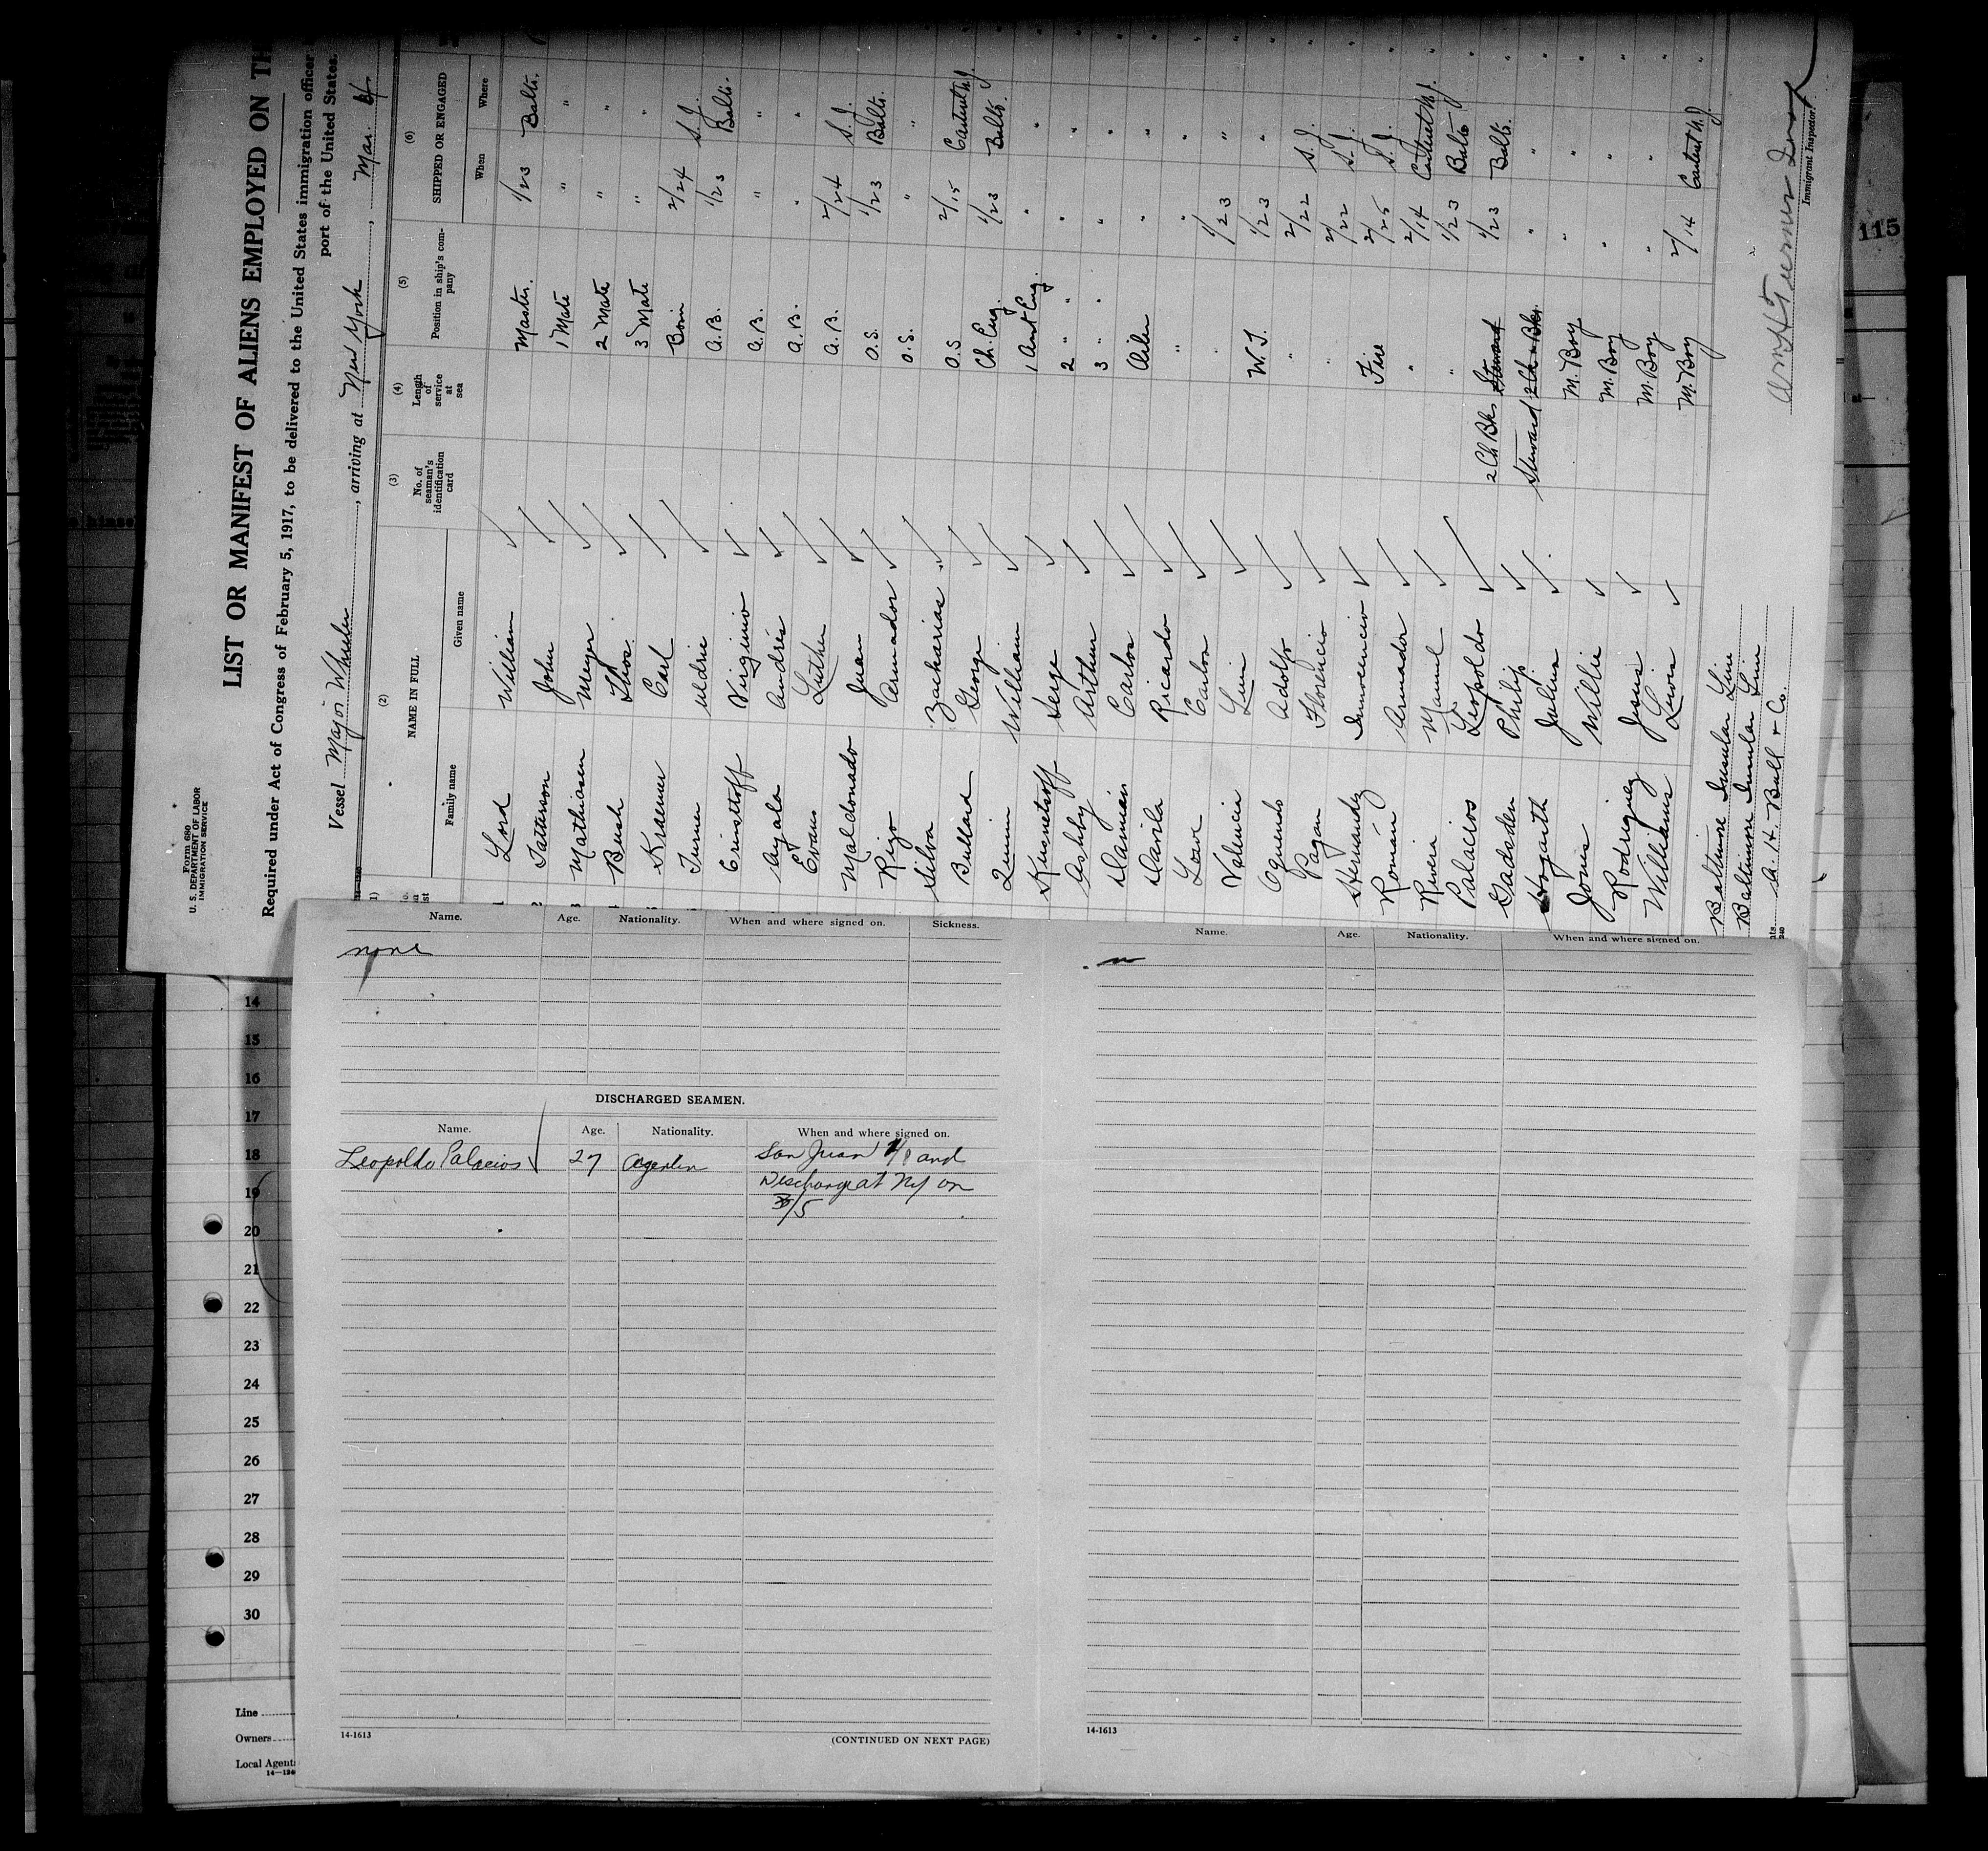 Form 680
U. S. DEPARTMENT OF LABOR
IMMIGRATION SERVICE
LIST OR MANIFEST OF ALIENS EMPLOYED ON TH
Required under Act of Congress of February 5, 1917, to be delivered to the United States immigration officer
port of the United States.
Vessel Major Wheeler, arriving at New York, Mar. 4
(1) (2) (3) (4) (5) (6)
NAME IN FULL
Family name Given name
No. of seaman's identification card
Length of service at sea
Position in ship's company
SHIPPED OR ENGAGED
When Where
Lord William Master. 1/23 Balto.
John 1 Mate " "
Mathiasen Meyer 2 Mate " "
Bush Thos. 3 Mate " "
Kraemer Carl Bosn 2/24 S. J.
Turner A.B. 1/23 Balto.
Virginio A.B. " "
Ayala Andrés A.B. " "
Evans Luther A.B. 2/24 S. J.
Maldonado Juan O.S. 1/23 Balto.
Rigo O.S. " "
Silva Zacharias O.S. 2/15 Carteret N.J.
Bullard George Ch. Eng. 1/23 Balto.
Quinn William 1 Asst Eng. " "
Serge 2 " " " "
Ashby Arthur 3 " " " "
Damian Carlos Oiler " "
Davila Ricardo " " "
Lowe Carlos " "
Valencia Luis W. T. 1/23 "
Oquendo Adolfo " 1/23 "
Pagan Florencio " 2/22 S. J.
Hernandez Innocencio Fire 2/22 S. J.
Román Armador " 2/25 S. J.
Rivera Manuel " 2/14 Carteret N.J.
Palacios Leopoldo 2 Ch Bks Steward 1/23 Balto
Gadsden Philip Steward 2 Ch. & Bks. 1/23 Balto.
Hogarth Julius M. Boy " "
Jones Willie M. Boy " "
Rodriguez Jesus M. Boy " "
Williams Lewis M. Boy 2/14 Carteret N.J.
Baltimore Insular Line
Baltimore Insular Line
A. H. Bull & Co.
Immigrant Inspector.
115
Name. Age. Nationality. When and where signed on. Sickness.
none
DISCHARGED SEAMEN.
Name. Age. Nationality. When and where signed on.
Leopoldo Palacios 27 San Juan and
Discharge at NY on
3/5
14-1613 (CONTINUED ON NEXT PAGE)
Name. Age. Nationality. When and where signed on.
14-1613
14
15
16
17
18
19
20
21
22
23
24
25
26
27
28
29
30
Line
Owners
Local Agents